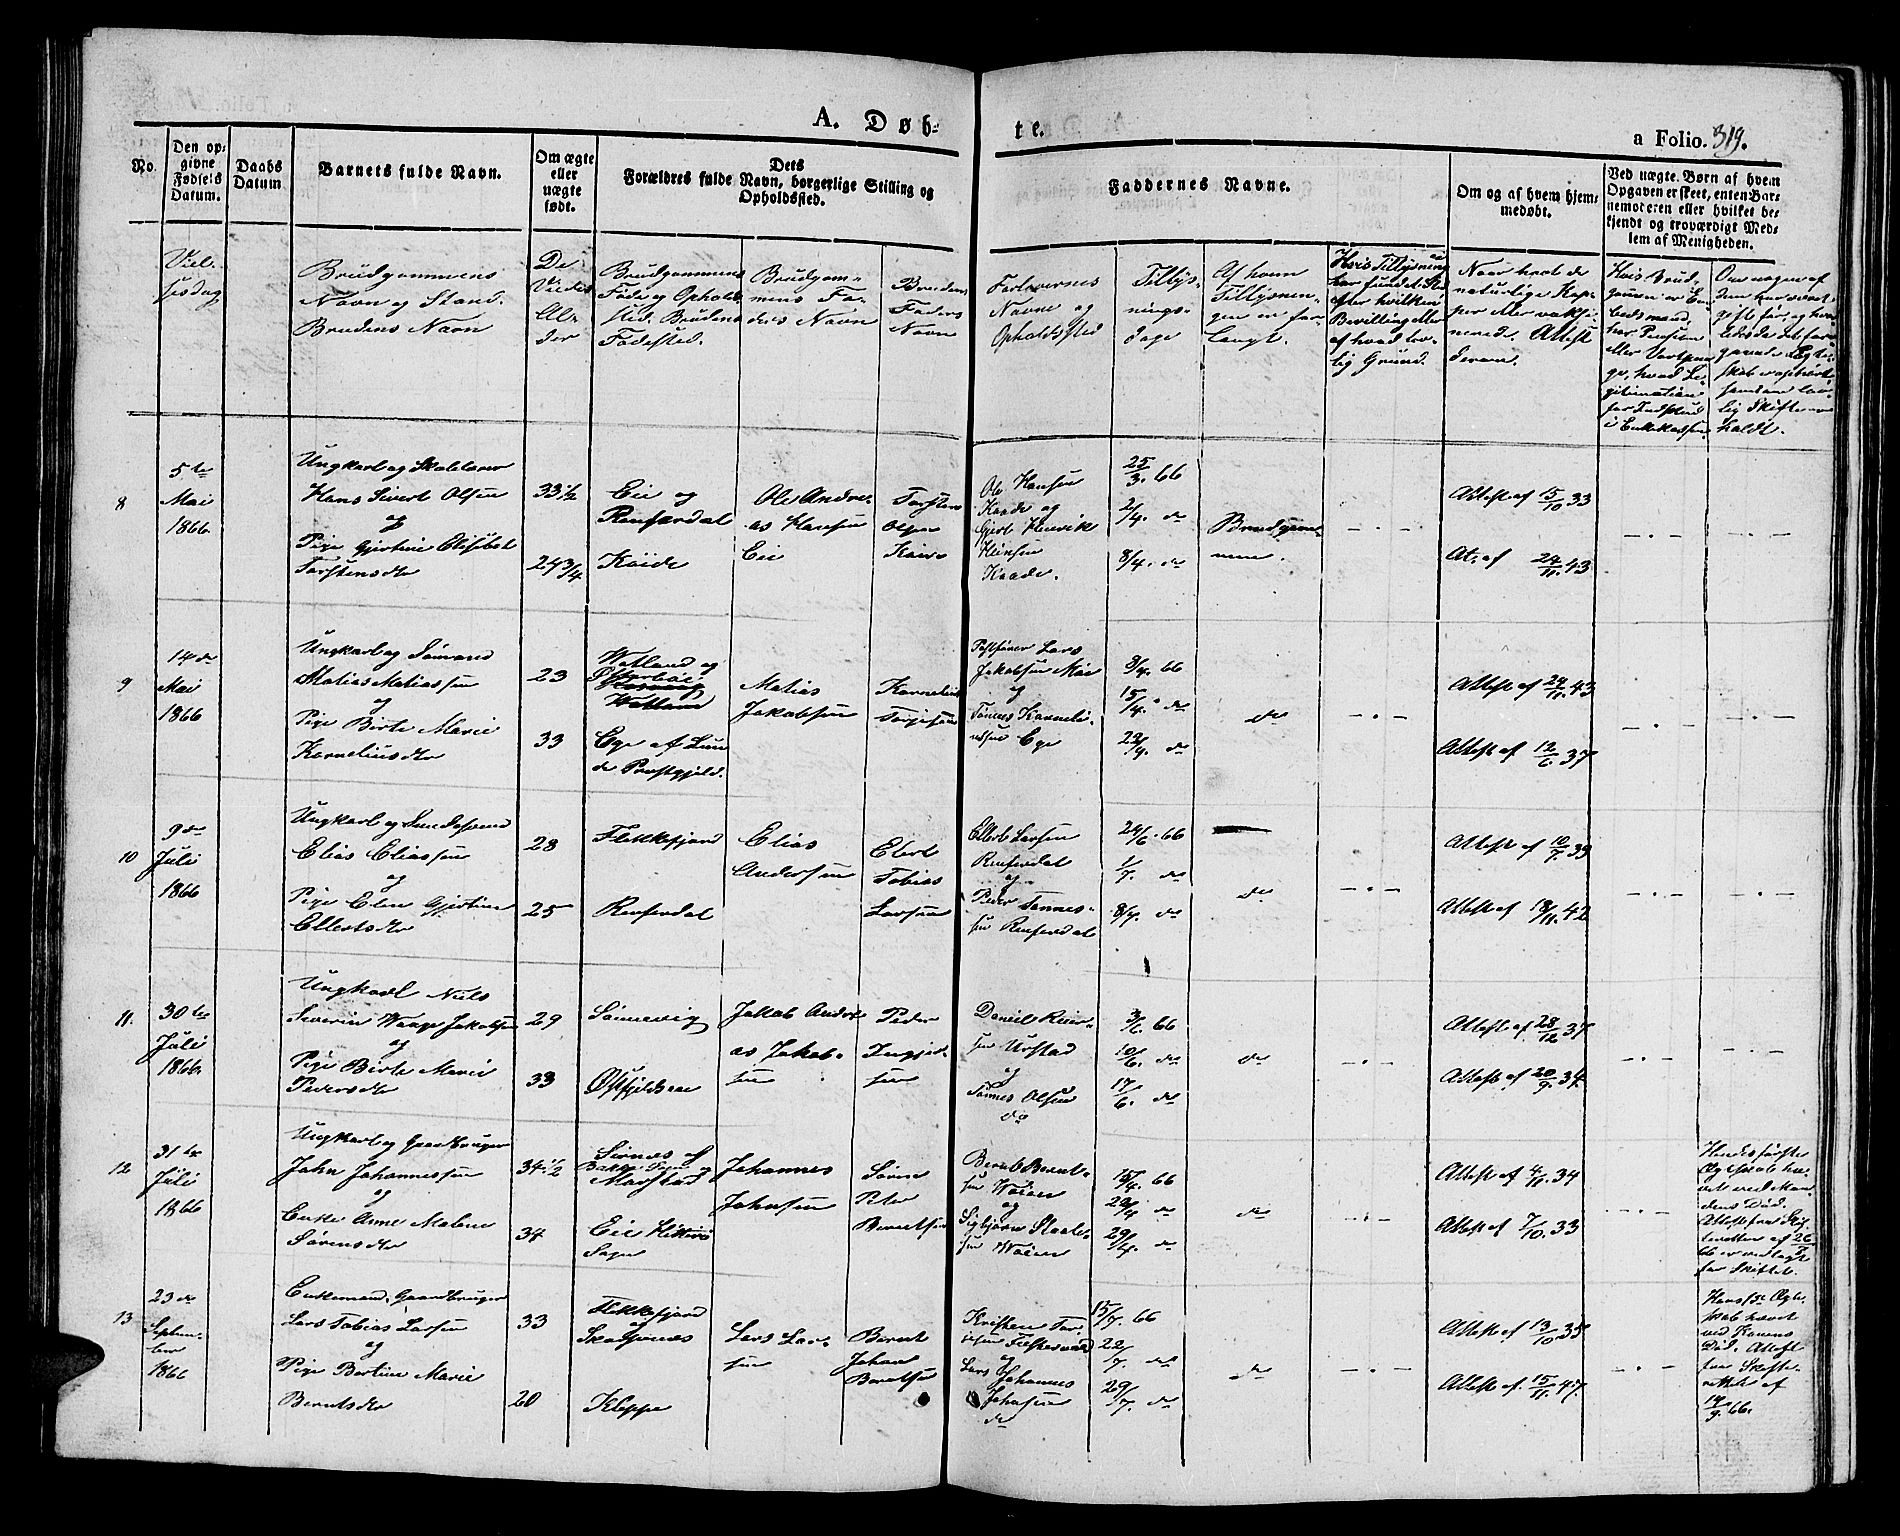 A. Døb-
te.
a Folio. 319.
No.
Den op-
givne
Fødsels
Datum.
Daabs
Datum
Barnets fulde Navn.
Om ægte
eller
uægte
født.
Dets
Forældres fulde Navn, borgerlige Stilling og
Opholdssted.
Faddernes Navne.
Om og af hvem hjem-
medøbt.
Ved uægte Børn af hvem
Opgaven er skeet, enten Bar-
nemoderen eller hvilket be-
kjendt og troværdigt Med-
lem af Menigheden.
Viel-
sesdag
Brudgommens
Navn og Stand.
Brudens Navn
De
Viedes
Al-
der
Brudgommens
Føde og Ophold
sted. Brudens
Fødested.
Brudgom-
mens Fa-
ders Navn
Brudens
Faders
Navn
Forlovernes
Navne og
Opholdssted
Tillys-
nings-
dage
Af hvem
Tillysnin-
gen er for-
langt.
Hvis Tillysning ei
har fundet Sted
efter hvilken
Bevilling eller
af hvad lov-
lig Grund.
Naar havt de
naturlige Kop-
per eller vaksi-
nerede. Attest
derom.
Hvis Brud-
gommen er Em-
bedsmand,
har Pension
eller Vartpen-
ge, hvad Le-
gitimation
for Indskud
i Enkekassen
Om nogen af
dem har været
gift før, og hvor-
ledes det fore-
gaaende Ægte-
skab er ophævet
samt om lov-
lig Skifte er
holdt.
8
5te
Mai
1866
Ungkarl og Skolelærer
Hans Sivert Olsen
og
Pige Gjertine Elisabet
Torstensdtr
33 1/2
24 3/4
Eie og
Rensærdal
Køide
Ole Andre-
as Hansen
Eie
Torsten
Olsen
Ole Hansen
Kaade og
Gjert Henrik
Heinsen
Kaade.
25/3. 66
2/4. do
8/4. do
Brudgom-
men.
Attest af 15/10 33
At. af 24/11. 43
9
14de
Mai
1866
Ungkarl og Sømand
Matias Matiassen
og
Pige Birte Marie
Korneliusdtr
23
33
Watland og
Watland
Ege af Lun-
de Præstgjeld.
Matias
Jakobsen
Kornelius
Torjesen
Lars
Jakobsen Moi
og
Tønnes Korneli-
ussen Ege
3/4. 66
15/4. do
22/4. do
do
Attest af 24/11. 43
Attest af 12/6. 37
10
9de
Juli
1866
Ungkarl og
Elias Eliassen
og
Pige Elen Gjertine
Ellertsdtr
28
25
Flekkefjord
Renserdal
Elias
Andersen
Elert
Tobias
Larsen
Ellert Larsen
Renserdal
og
Peder Tønnes-
sen Renserdal
24/6. 66
1/7. do
8/7. do
do
Attest af 10/7. 39
Attest af 18/11. 42
11.
30te
Juli
1866
Ungkarl Niels
Severin Waage Jakobsen
og
Pige Birte Marie
Pedersdtr
29
33
Sønnevig
Jakob Andre-
as Jakob-
sen
Peder
Ingjer-
sen
Daniel Reier-
sen Urstad
og
Tønnes Olsen
do
3/6. 66
10/6. do
17/6. do
do
Attest af 28/12 37
Attest af 20/9. 34
12
31te
Juli
1866
Ungkarl og Gaardbruger
John Johannessen
og
Enke Anne Malene
Sørensdtr
34 1/2
34
Sirnes af
Bakke Sogn og
Marstad
Eie Hitterø
Sogn
Johannes
Johnsen
Søren
Peter
Berentsen
Berent Berent-
sen Woien
og
Sigbjørn Staale-
sen Woien
15/4. 66
22/4 do
29/4. do
do
Attest af 4/11. 34
Attest af 7/10. 33
Hendes første
Ægteskab hæ-
vet ved Man-
dens Død.
Attest fra Skif-
teretten af 26/7
66 er vedlagt
for Skiftet.
13
23de
Septem-
ber
1866
Enkemand, Gaardbruger
Lars Tobias Larsen
og
Pige Bertine Marie
Berntsdtr
33
20
Flekkefjord
og
Kleppe
Lars Lar-
sen
Bernt
Johan
Berntsen
Kristen Tor-
og
Lars Johannes
Johnsen
do
15/7. 66
22/7. do
29/7. do
do
Attest af 13/10 35
Attest af. 15/11. 47.
Hans første Ægte-
skab hævet
ved Konens
Død. Attest
fra Skifte-
retten af
19/9. 66.